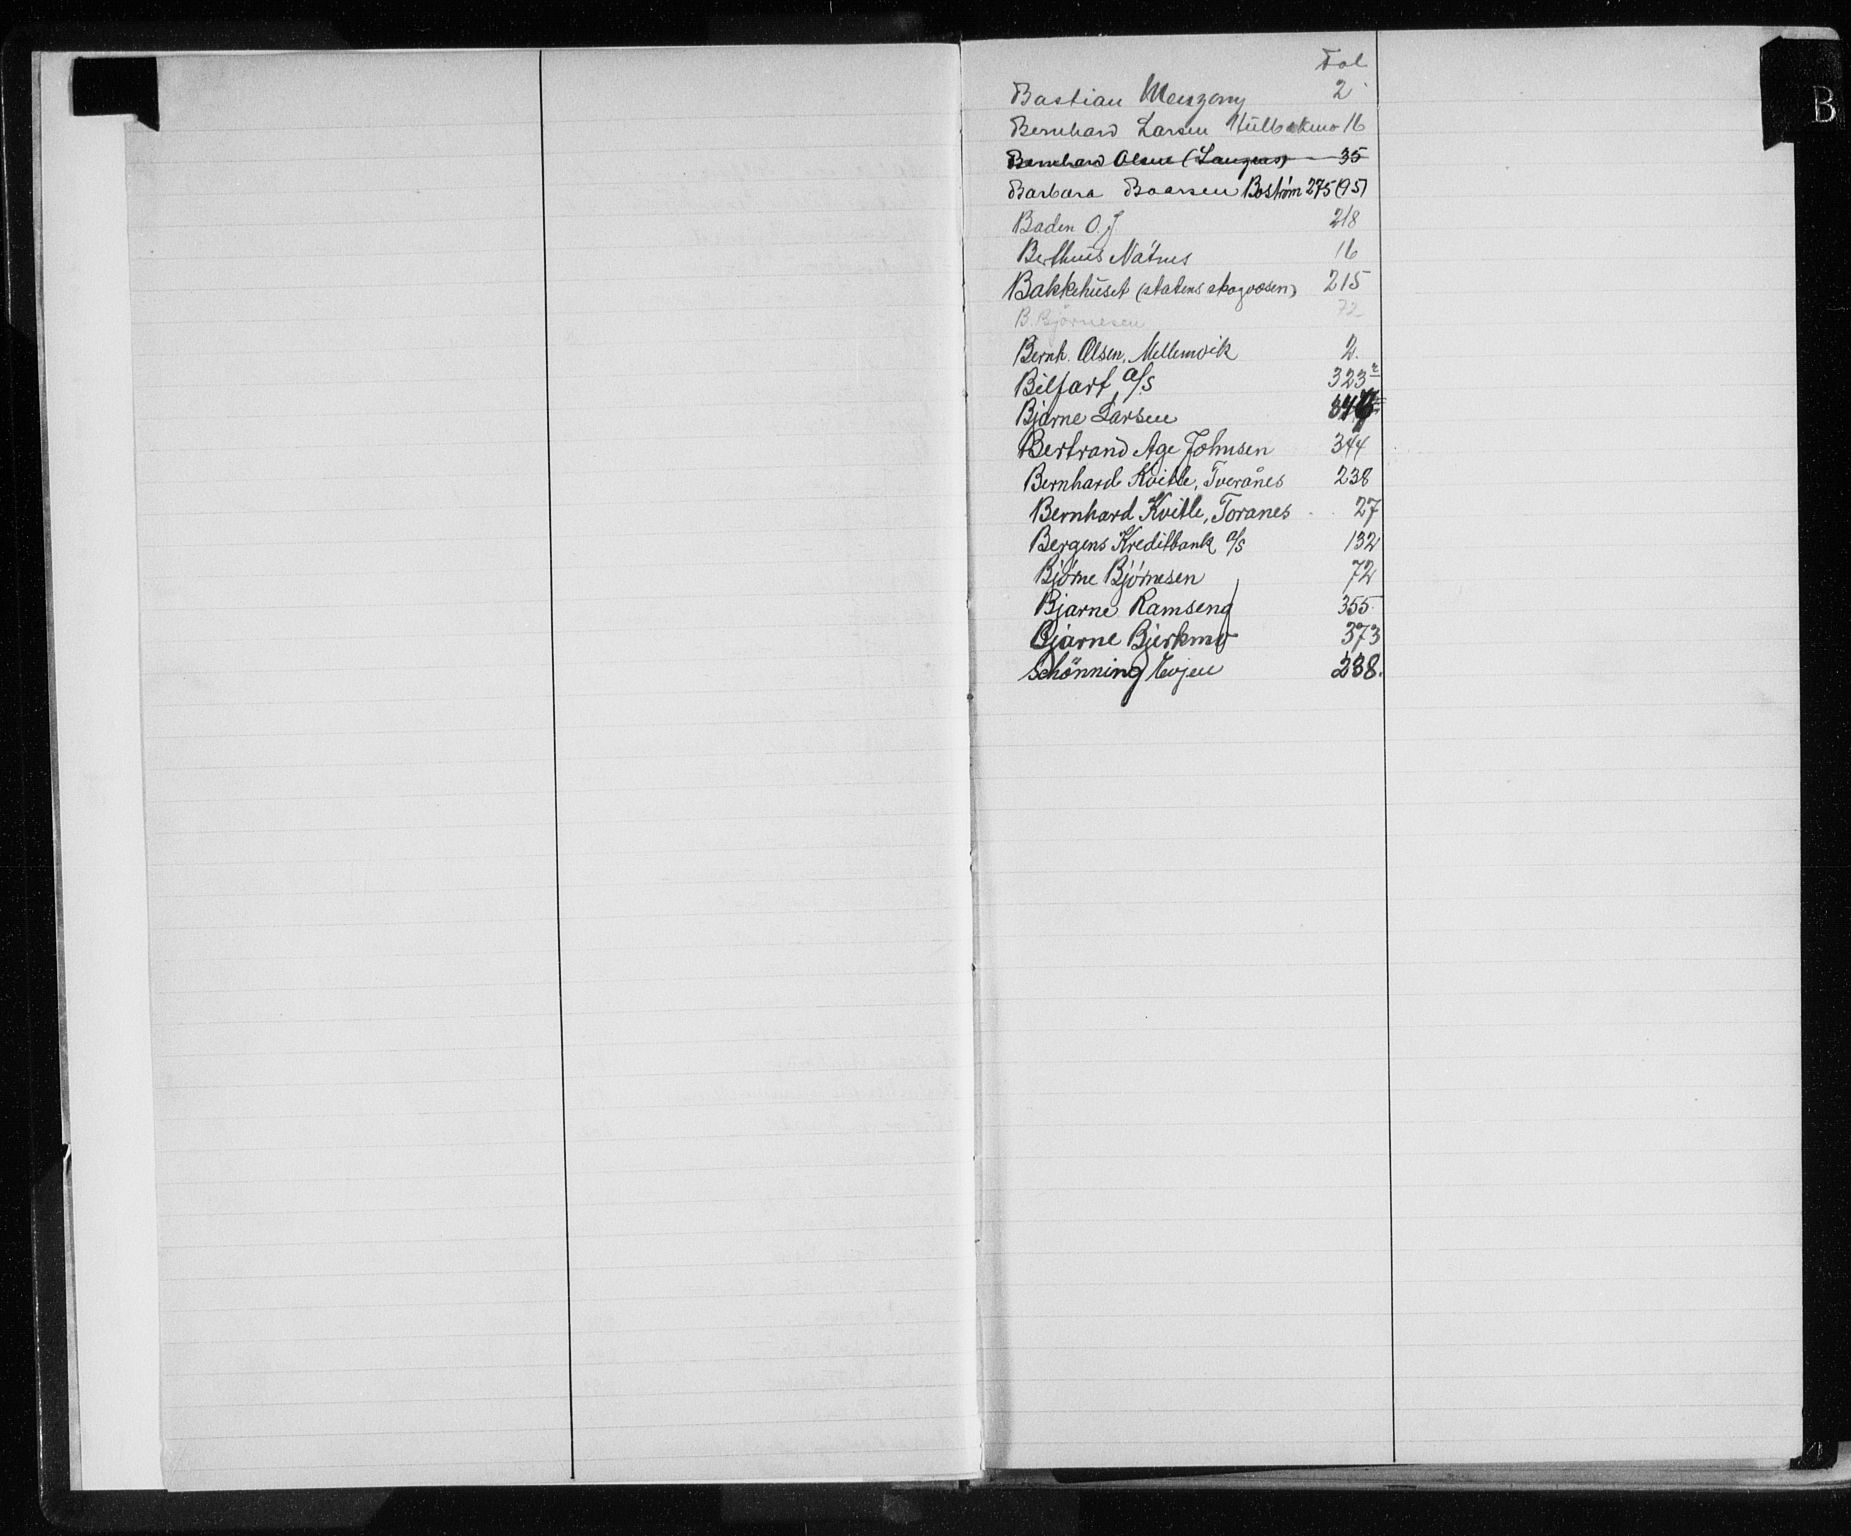 Fol
B
Bastian 2
Bernhard Larsen 16
Bernhard Olsen 35
Barbara Baarsen Bostrøm 275 (95)
Baden O. J 218
Berthus 16
Bakkehuset (statens skogvæsen) 215
B. Bjørnesen 72
Bernh. Olsen, Mellemvik 2.
Bilfart a/s 323
Bjarne Larsen
Bertrand Age Johnsen 344
Bernhard Kvitle, Tverånes 238
Bernhard Kvitle, Toranes 27
Bergens Kreditbank a/s 132
Bjørne Bjørnesen 72
Bjarne Ramseng 355
Bjarne Bjerkmo 373
Schönning Evjen 238.